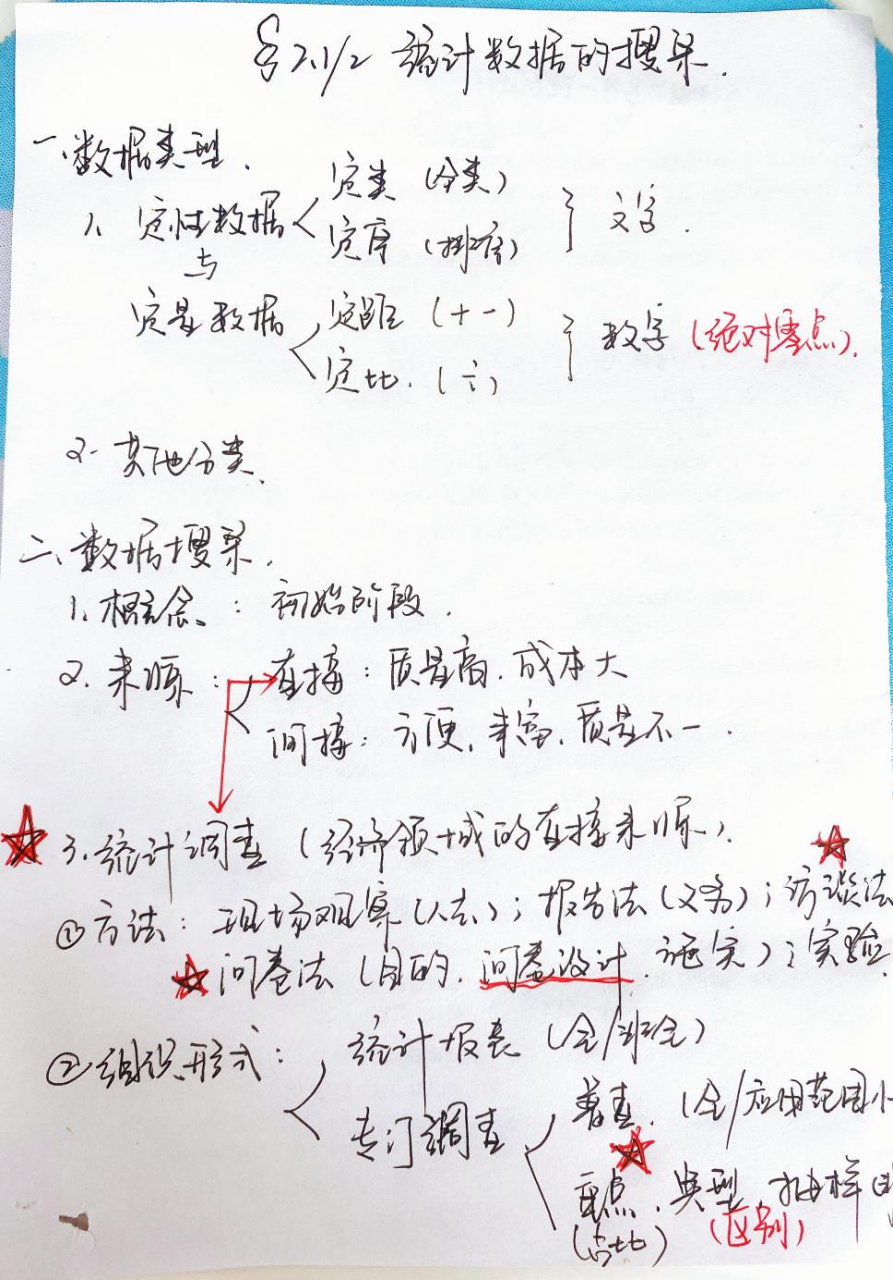 §2.1/2 统计数据的搜集.
一、数据类型.
1、定性数据 定类 (分类) 文字.
与 定序 (排序)
定量数据 定距 (+-) 数字 (绝对零点).
定比. (÷)
2. 其他分类.
二、数据搜集.
1. 概念: 初始阶段.
2. 来源: 直接: 质量高. 成本大
间接: 方便, 丰富, 质量不一.
3. 统计调查 (经济领域的直接来源).
①方法: 现场观察 (人去); 报告法 (义务); 访谈法
问卷法 (目的. 问卷设计. 证实); 实验
②组织形式: 统计报表 (全/非全)
专门调查 普查. (全/应用范围小
重点. 典型. 抽样
(占比) (区别)